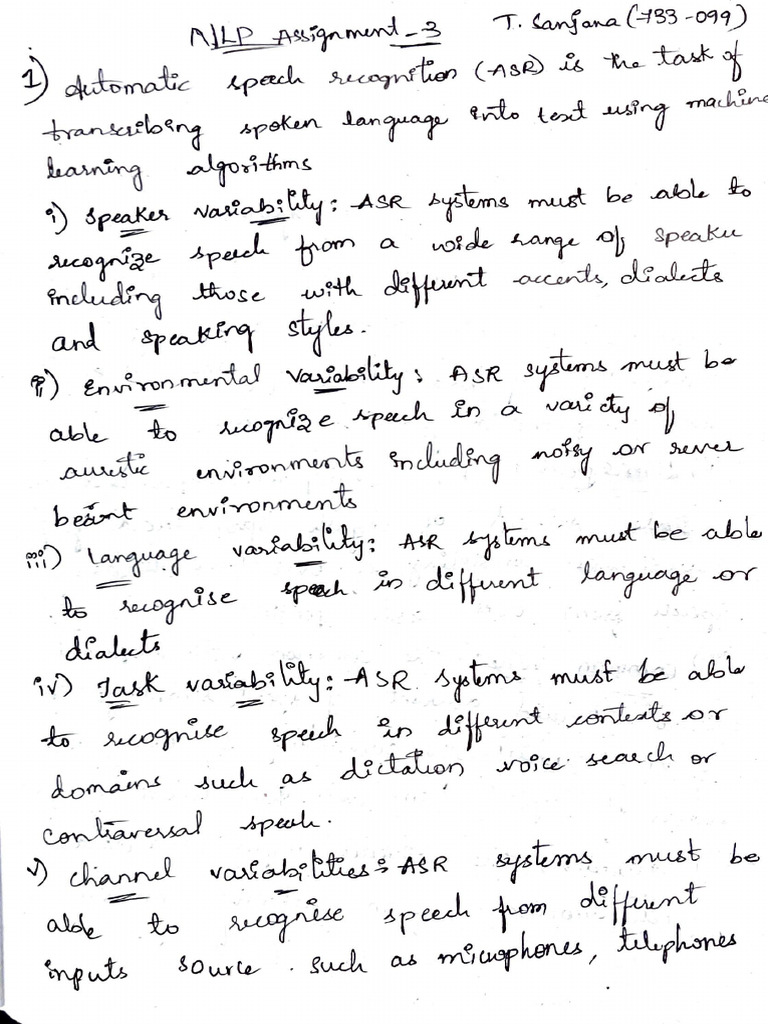 NLP Assignment-3 T. Sanjana (733-099)
1) Automatic speech recognition (ASR) is the task of
transcribing spoken language into text using machine
learning algorithms
i) speaker variability: ASR systems must be able to
recognize speech from a wide range of speaker
including those with different accents, dialects
and speaking styles.
ii) Environmental variability: ASR systems must be
able to recognize speech in a variety of
environments including noisy or rever
berant environments
iii) Language variability: ASR systems must be able
to recognise speech in different language or
dialects
iv) Task variability:- ASR systems must be able
to recognise speech in different contexts or
domains such as dictation voice search or
speech.
v) channel variabilities: ASR systems must be
able to recognise speech from different
inputs source. such as microphones, telephones